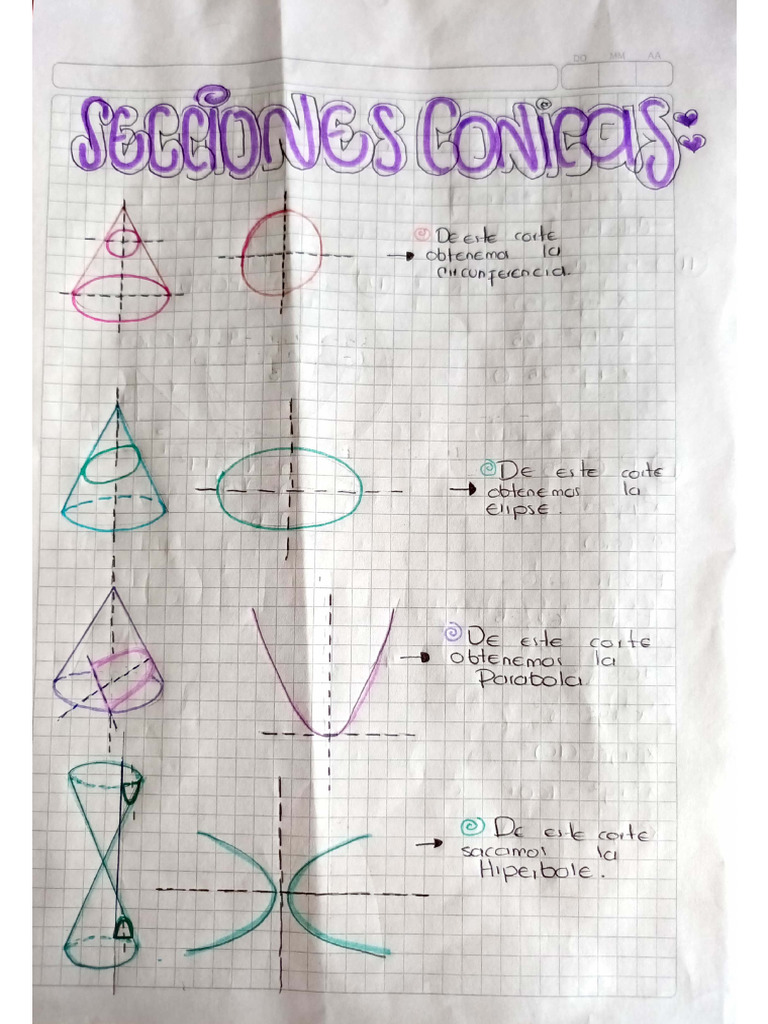 DD MM AA
SECCIONES CONICAS:
De este corte
obtenema la
circunferencia.
De este corte
obtenemos la
elipse.
De este corte
obtenemos la
Parabola.
De este corte
sacamos la
Hiperbole.